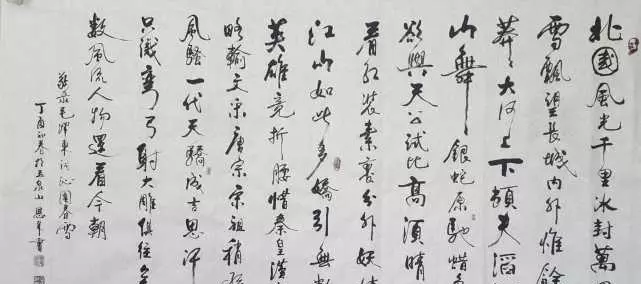 北國風光千里冰封萬
雪飄望長城内外惟餘
莽〻大河上下頓失滔
山舞〻銀蛇原馳蜡
欲與天公試比高須晴
看紅裝素裹分外妖
江山如此多嬌引無數
英雄竞折腰惜秦皇漢
略輸文采唐宗宋祖稍
風騷一代天驕成吉思汗
只識彎弓射大雕俱往
數風流人物還看今朝
毛澤東词沁園春雪
丁酉初春於玉泉山